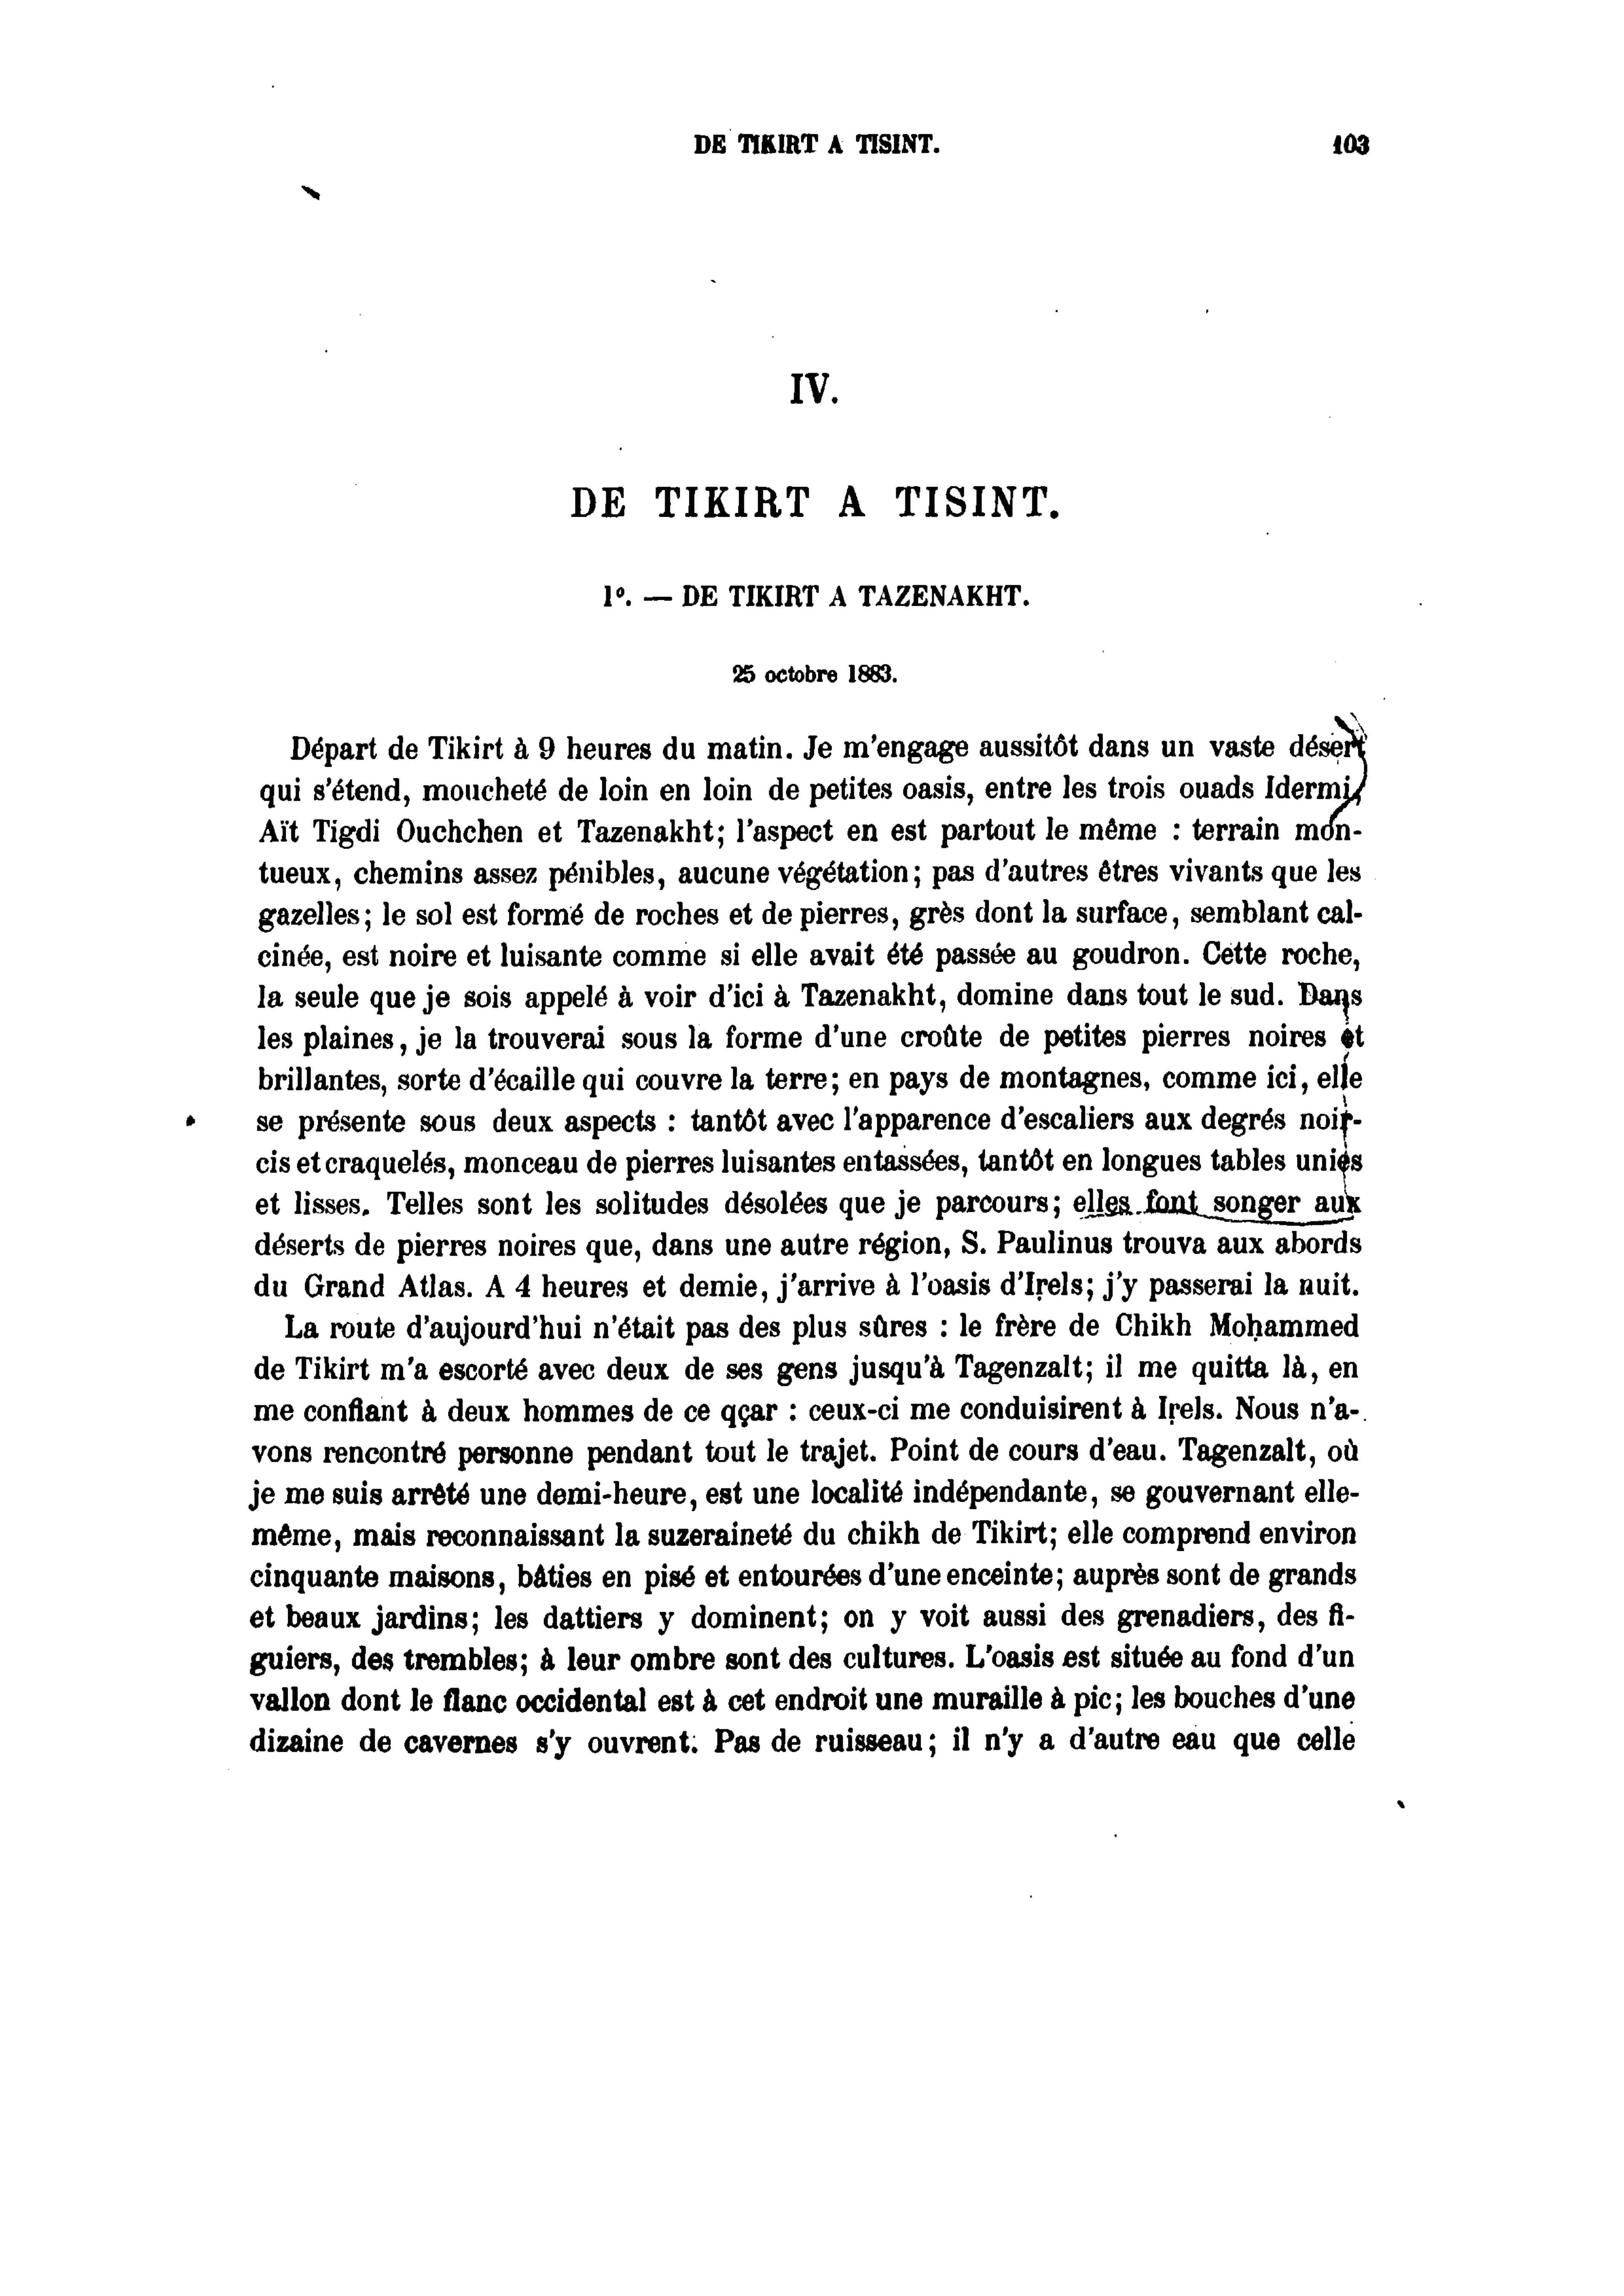 DE TIKIRT A TISINT. 103
IV.
DE TIKIRT A TISINT.
1º. — DE TIKIRT A TAZENAKHT.
25 octobre 1883.
Départ de Tikirt à 9 heures du matin. Je m'engage aussitôt dans un vaste désert
qui s'étend, moucheté de loin en loin de petites oasis, entre les trois ouads Idermi,
Aït Tigdi Ouchchen et Tazenakht; l'aspect en est partout le même : terrain mon-
tueux, chemins assez pénibles, aucune végétation; pas d'autres êtres vivants que les
gazelles; le sol est formé de roches et de pierres, grès dont la surface, semblant cal-
cinée, est noire et luisante comme si elle avait été passée au goudron. Cette roche,
la seule que je sois appelé à voir d'ici à Tazenakht, domine dans tout le sud. Dans
les plaines, je la trouverai sous la forme d'une croûte de petites pierres noires et
brillantes, sorte d'écaille qui couvre la terre; en pays de montagnes, comme ici, elle
se présente sous deux aspects : tantôt avec l'apparence d'escaliers aux degrés noir-
cis et craquelés, monceau de pierres luisantes entassées, tantôt en longues tables unies
et lisses. Telles sont les solitudes désolées que je parcours; elles font songer aux
déserts de pierres noires que, dans une autre région, S. Paulinus trouva aux abords
du Grand Atlas. A 4 heures et demie, j'arrive à l'oasis d'Iṛels; j'y passerai la nuit.
La route d'aujourd'hui n'était pas des plus sûres : le frère de Chikh Moḥammed
de Tikirt m'a escorté avec deux de ses gens jusqu'à Tagenzalt; il me quitta là, en
me confiant à deux hommes de ce qçar : ceux-ci me conduisirent à Iṛels. Nous n'a-
vons rencontré personne pendant tout le trajet. Point de cours d'eau. Tagenzalt, où
je me suis arrêté une demi-heure, est une localité indépendante, se gouvernant elle-
même, mais reconnaissant la suzeraineté du chikh de Tikirt; elle comprend environ
cinquante maisons, bâties en pisé et entourées d'une enceinte; auprès sont de grands
et beaux jardins; les dattiers y dominent; on y voit aussi des grenadiers, des fi-
guiers, des trembles; à leur ombre sont des cultures. L'oasis est située au fond d'un
vallon dont le flanc occidental est à cet endroit une muraille à pic; les bouches d'une
dizaine de cavernes s'y ouvrent. Pas de ruisseau; il n'y a d'autre eau que celle